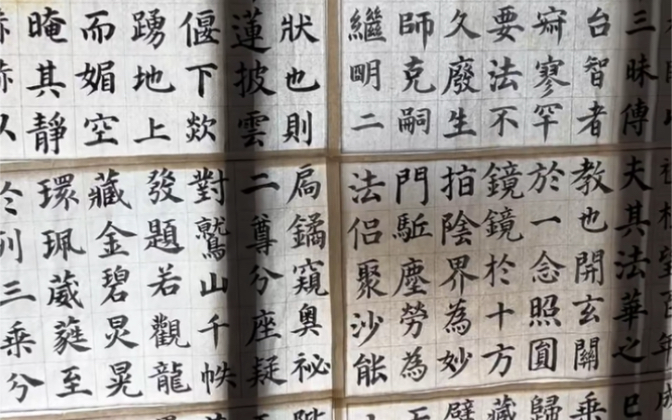 三昧傳
台智者
寂寥罕
要法不
久廢生
師克嗣
繼明二
狀也則
蓮披雲
偃下欻
踴地上
而媚空
晻其靜
夫其法華之
教也開玄關
於一念照圎
鏡鏡於十方
拍陰界為妙
門駈塵勞為
法侶聚沙能
扃鐍窺奧祕
二尊分座疑
對鷲山千帙
發題若觀龍
藏金碧炅晃
環珮葳蕤至
列三乘分